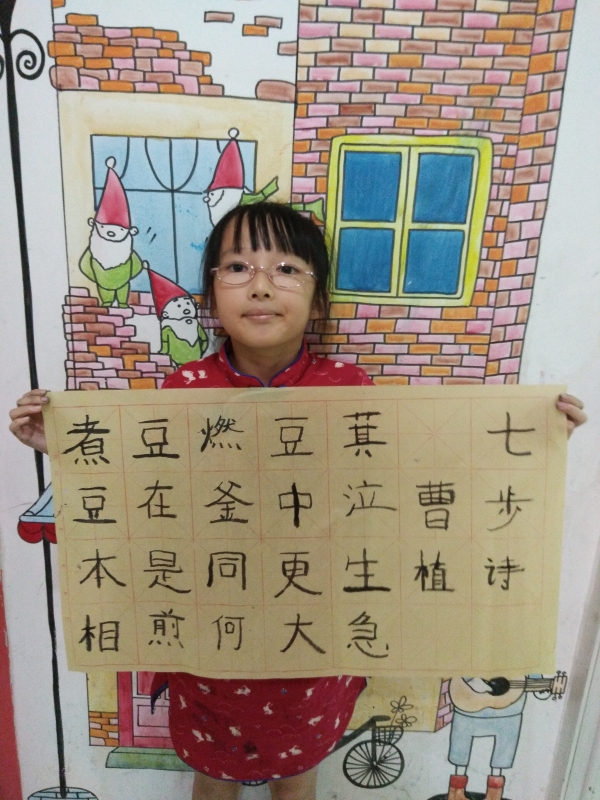 七步诗
曹植
煮豆燃豆萁
豆在釜中泣
本是同更生
相煎何大急